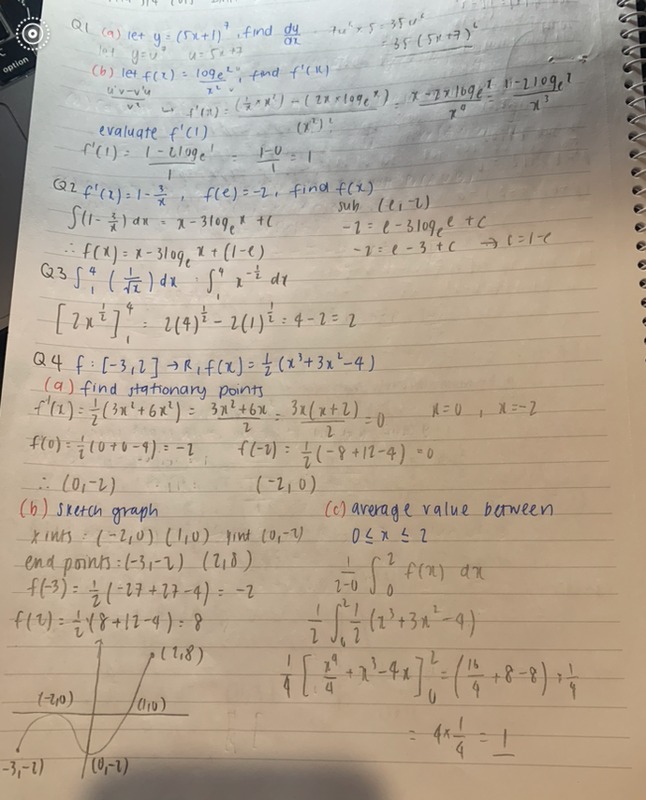 option
Q1 (a) let y = (5x+1)⁷, find dy/dx 7u⁶ × 5 = 35u⁶
let y = u⁷ u = 5x+7 = 35(5x+7)⁶
(b) let f(x) = logₑx / x², find f'(x)
u'v - v'u / v² f'(x) = (1/x × x²) - (2x × logₑx) / (x²)² = x - 2x logₑx / x⁴ = 1 - 2logₑx / x³
evaluate f'(1)
f'(1) = 1 - 2logₑ1 / 1 = 1-0 / 1 = 1
Q2 f'(x) = 1 - 3/x, f(e) = -2, find f(x)
∫(1 - 3/x) dx = x - 3logₑx + c sub (e, -2)
-2 = e - 3logₑe + c
∴ f(x) = x - 3logₑx + (1-e) -2 = e - 3 + c → c = 1-e
Q3 ∫₁⁴ (1/√x) dx : ∫₁⁴ x^(-1/2) dx
[2x^(1/2)]₁⁴ = 2(4)^(1/2) - 2(1)^(1/2) = 4 - 2 = 2
Q4 f: [-3,2] → R, f(x) = 1/2 (x³ + 3x² - 4)
(a) find stationary points
f'(x) = 1/2 (3x² + 6x²) = 3x² + 6x / 2 = 3x(x+2) / 2 = 0 x = 0, x = -2
f(0) = 1/2 (0+0-4) = -2 f(-2) = 1/2 (-8+12-4) = 0
∴ (0,-2) (-2,0)
(b) sketch graph
x ints: (-2,0) (1,0) yint (0,-2)
end points: (-3,-2) (2,8)
f(-3) = 1/2 (-27+27-4) = -2
f(2) = 1/2 (8+12-4) = 8
(2,8)
(-2,0) (1,0)
-3,-2) (0,-2)
(c) average value between
0 ≤ x ≤ 2
1/2-0 ∫₀² f(x) dx
1/2 ∫₀² 1/2 (x³ + 3x² - 4)
1/4 [x⁴/4 + x³ - 4x]₀² = (16/4 + 8 - 8) × 1/4
= 4 × 1/4 = 1